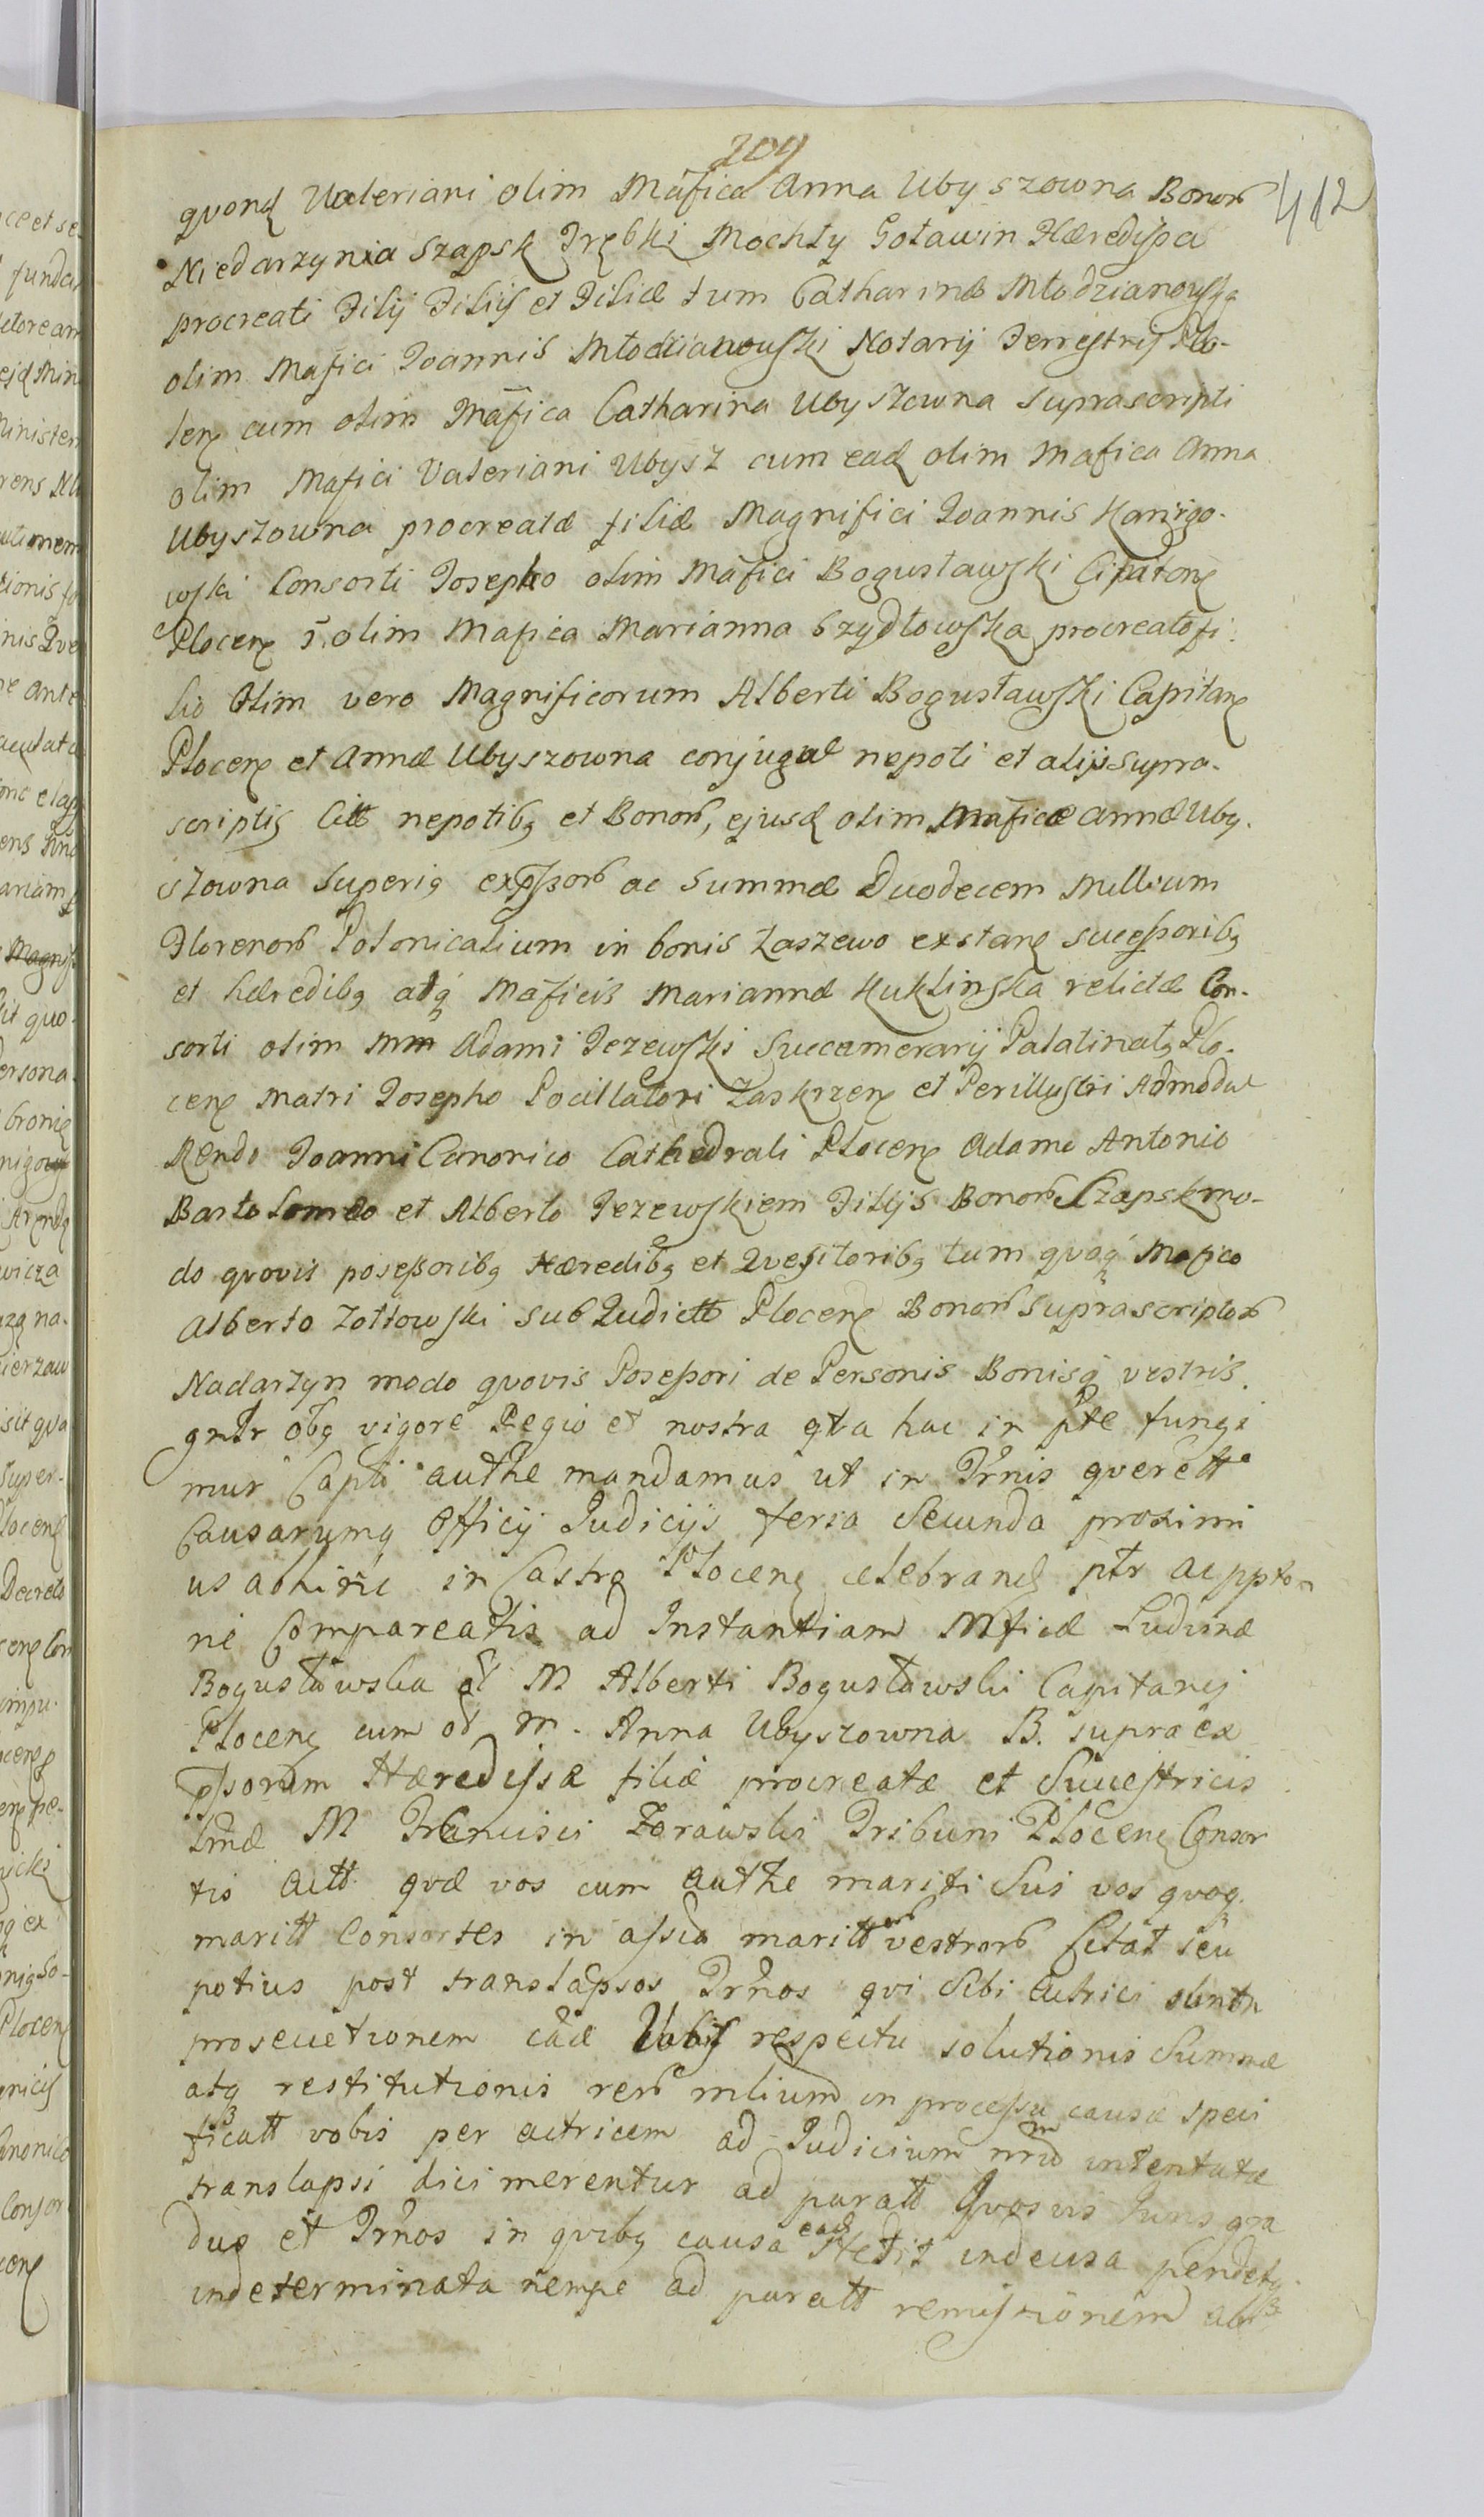 209
412
qvonđ Valeriani olim Mafica Anna Ubyszowna Bonor
Niedarzynia Szapsk Trębki Mochty Goławin Hæredissa
procreati Filij Filijs et Filiæ tum Catharinæ Młodzianowska
olim Mafici Joannis Młodzianowski Notarij Terrestris Plo-
cen cum olim Mafica Catharina Ubyszowna suprascripti
olim Mafici Valeriani Ubysz cum eađ olim Mafica Anna
Ubyszowna procreatæ filiæ Magnifici Joannis Karnigo-
wski Consorti Josepho olim Mafici Bogusławski
Plocen olim Mafica Marianna Szydłowska procreato fi-
lio Olim vero Magnificorum Alberti Bogusławski Capitan
Plocen et Annæ Ubyszowna conjugal nepoti et alijs supra-
scriptis Citt nepotibq et Bonor, ejusđ olim Maficæ Annæ Uby-
szowna superiq expssor ac Summæ Duodecem Millium
Florenor Polonicalium in bonis Łaszewo exstanq successoribq
et hæredibq atq Maficis Mariannæ Kuklinska relictæ Con-
sorti olim Mm Adami Jezewski Succamerarij Palatinatq Plo-
cen Matri Josepho Pocillatori Zaskrzen et Perillustri Admodul
Rendo Joanni Canonico Cathedrali Plocen Adamo Antonio
Bartolomeo et Alberto Jezewskiem Filijs Bonor Szapsk mo-
do qvovis posessoribq Hæredibq et Qvesitoribq tum qvoq Mafico
Alberto Zołtowski Sub Judici Plocen Bonor suprascriptor
Nadarzyn modo qvovis Posessori de Personis Bonisq vestris
gnlr obq vigore Regio et nostra qva hac in pte fungi
mur Capli authe mandamus ut in Trnis qverell
Causarumq Officij Judicijs feria Secunda proximi
us abhinc in Castro Plocen celebranđ ptr ac ppto-
rie Compareatis ad Instantiam Mficæ Ludvinæ
Bogusławska ol M Alberti Bogusławski Capitanej
Plocen cum ol M. Anna Ubyszowna B. supra ex
pssorum Hæredissæ filiæ procreatæ et Succestricis
Lmæ M Francisci Zorawski Tribuni Plocen Consor
tis Actt qvæ vos cum authe mariti Sui vos qvoq
maritt Consortes in assia marittor vestror Citat seu
potius post translapsos Trnos qvi Sibi Actrici
prosecutionem cæ Vobis respectu solutionis Summæ
atq restitutionis rer mlium in processu causæ speci
ficatt vobis per actricem ad Judicium nrm intentatæ
translapsi dici merentur ad paratt Qvosvis Juris gra
dus et Trnos in qvibq causa eađ Stetit indecisa pendetq
indeterminata nempe ad paratt remissionem ab